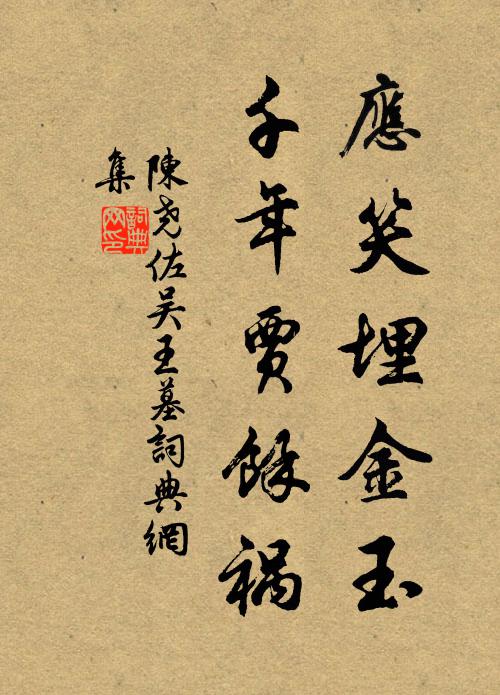 應笑埋金玉
千年賈餘禍
陳堯佐吳王墓詞典網
集
詞典
网印